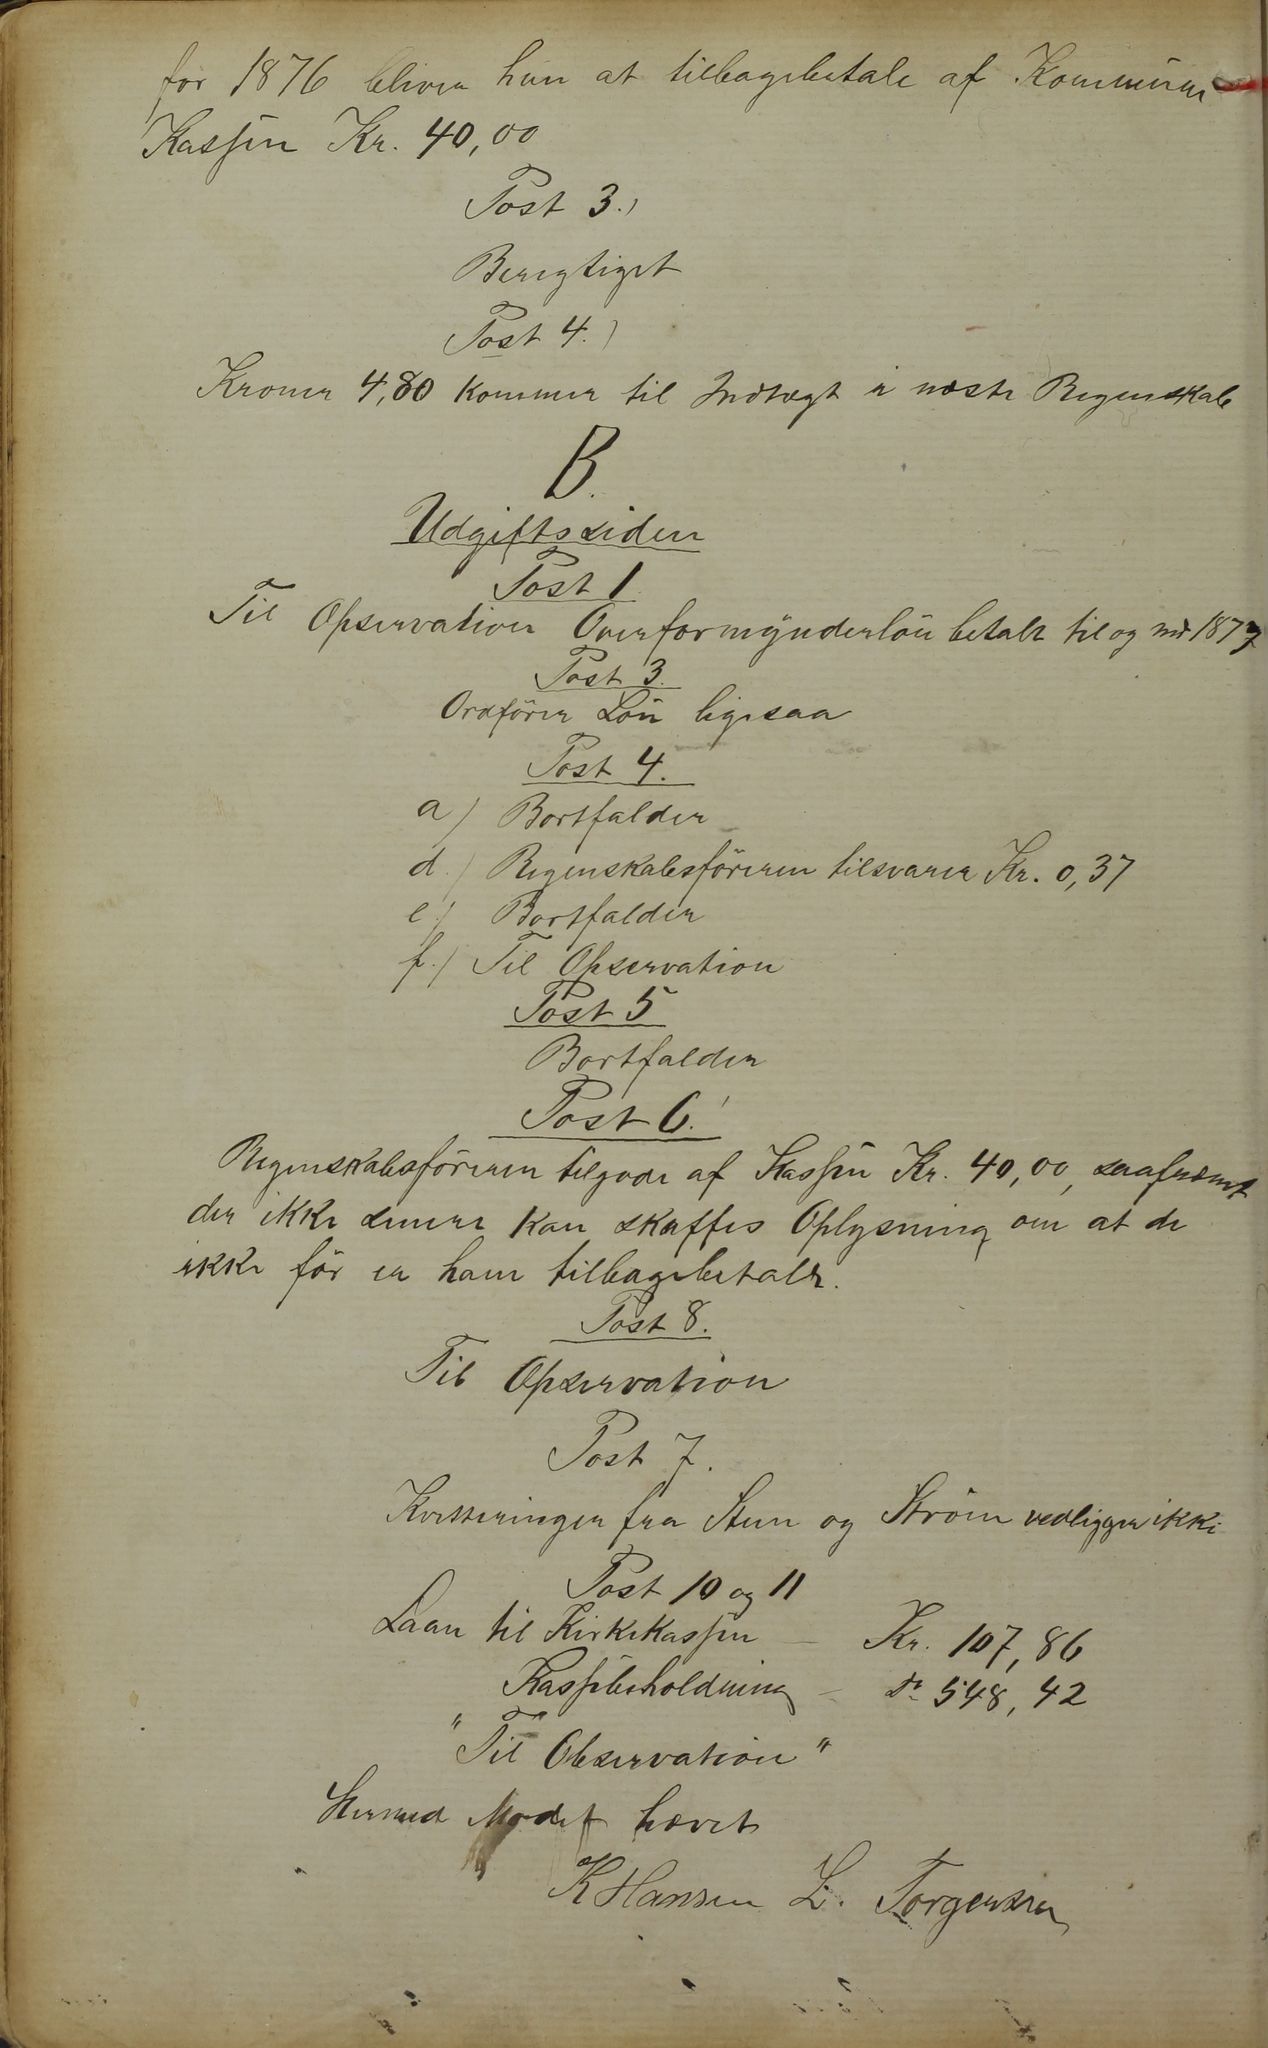 for 1876 bliver hun at tilbagebetale af Kommune
Kassen Kr. 40,00
Post 3.)
Berigtiget
Post 4.)
Kroner 4,80 kommer til Indtægt i næste Regenskab
B.
Udgiftssiden
Post 1
Til Opservation Overformynderløn betalt til og med 1877
Post 3.
Ordfører Løn ligesaa
Post 4.
a) Bortfalder
d.) Regenskabsføreren tilsvarer Kr. 0,37
e.) Bortfalder
f.) Til Opservation
Post 5
Bortfalder
Post 6.
Regenskabsføreren tilgode af Kassen Kr. 40,00, saafremt
der ikke senere kan skaffes Oplysning om at de
ikke før er ham tilbagebetalt.
Post 8.
Til Opservation
Post 7.
Kvitteringer fra Steen og Strøm vedligger ikke
Post 10 og 11
Laan til Kirkekassen – Kr. 107,86
Kassebeholdning – do 548,42
"Til Observation"
Hermed Mødet hævet
K Hansen L. Torgersen